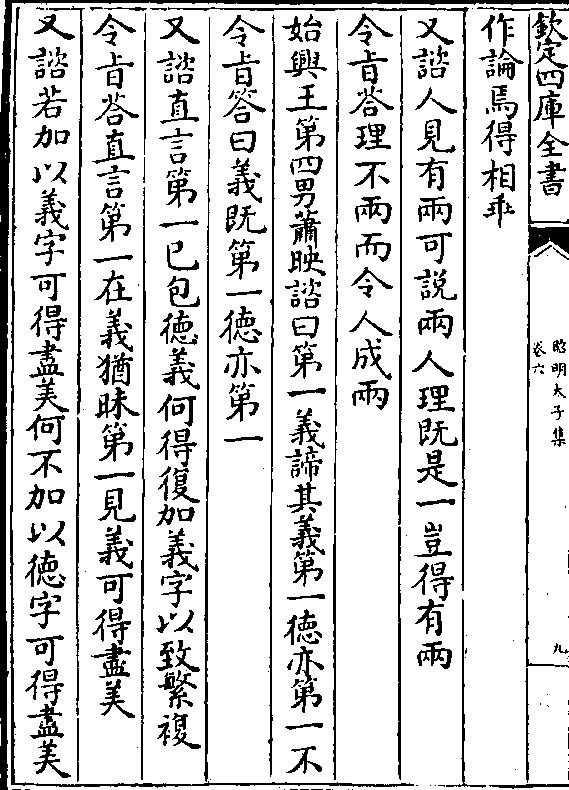 欽定四庫全書
昭明太子集
卷六
九
作論焉得相乖
又諮人見有兩可說兩人理既是一豈得有兩
令旨荅理不兩而令人成兩
始興王第四男蕭映諮曰第一義諦其義第一徳亦第一不
令旨答曰義既第一徳亦第一
又諮直言第一已包徳義何得復加義字以致繁複
令旨荅直言第一在義猶昧第一見義可得盡美
又諮若加以義字可得盡美何不加以徳字可得盡美